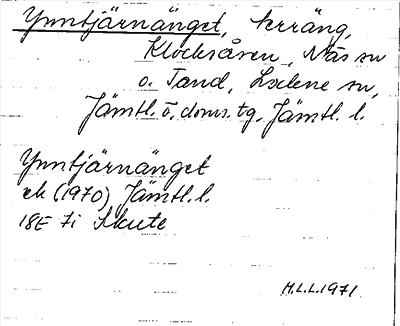 Ynntjärnänget, terräng,
Klocksåsen, Näs sn
o. Tand, Lockne sn,
Jämtl. ö. doms. tg. Jämtl. l.
Ynntjärnänget
ek (1970) Jämtl. l.
18E 7i Skute
M.L.L. 1971